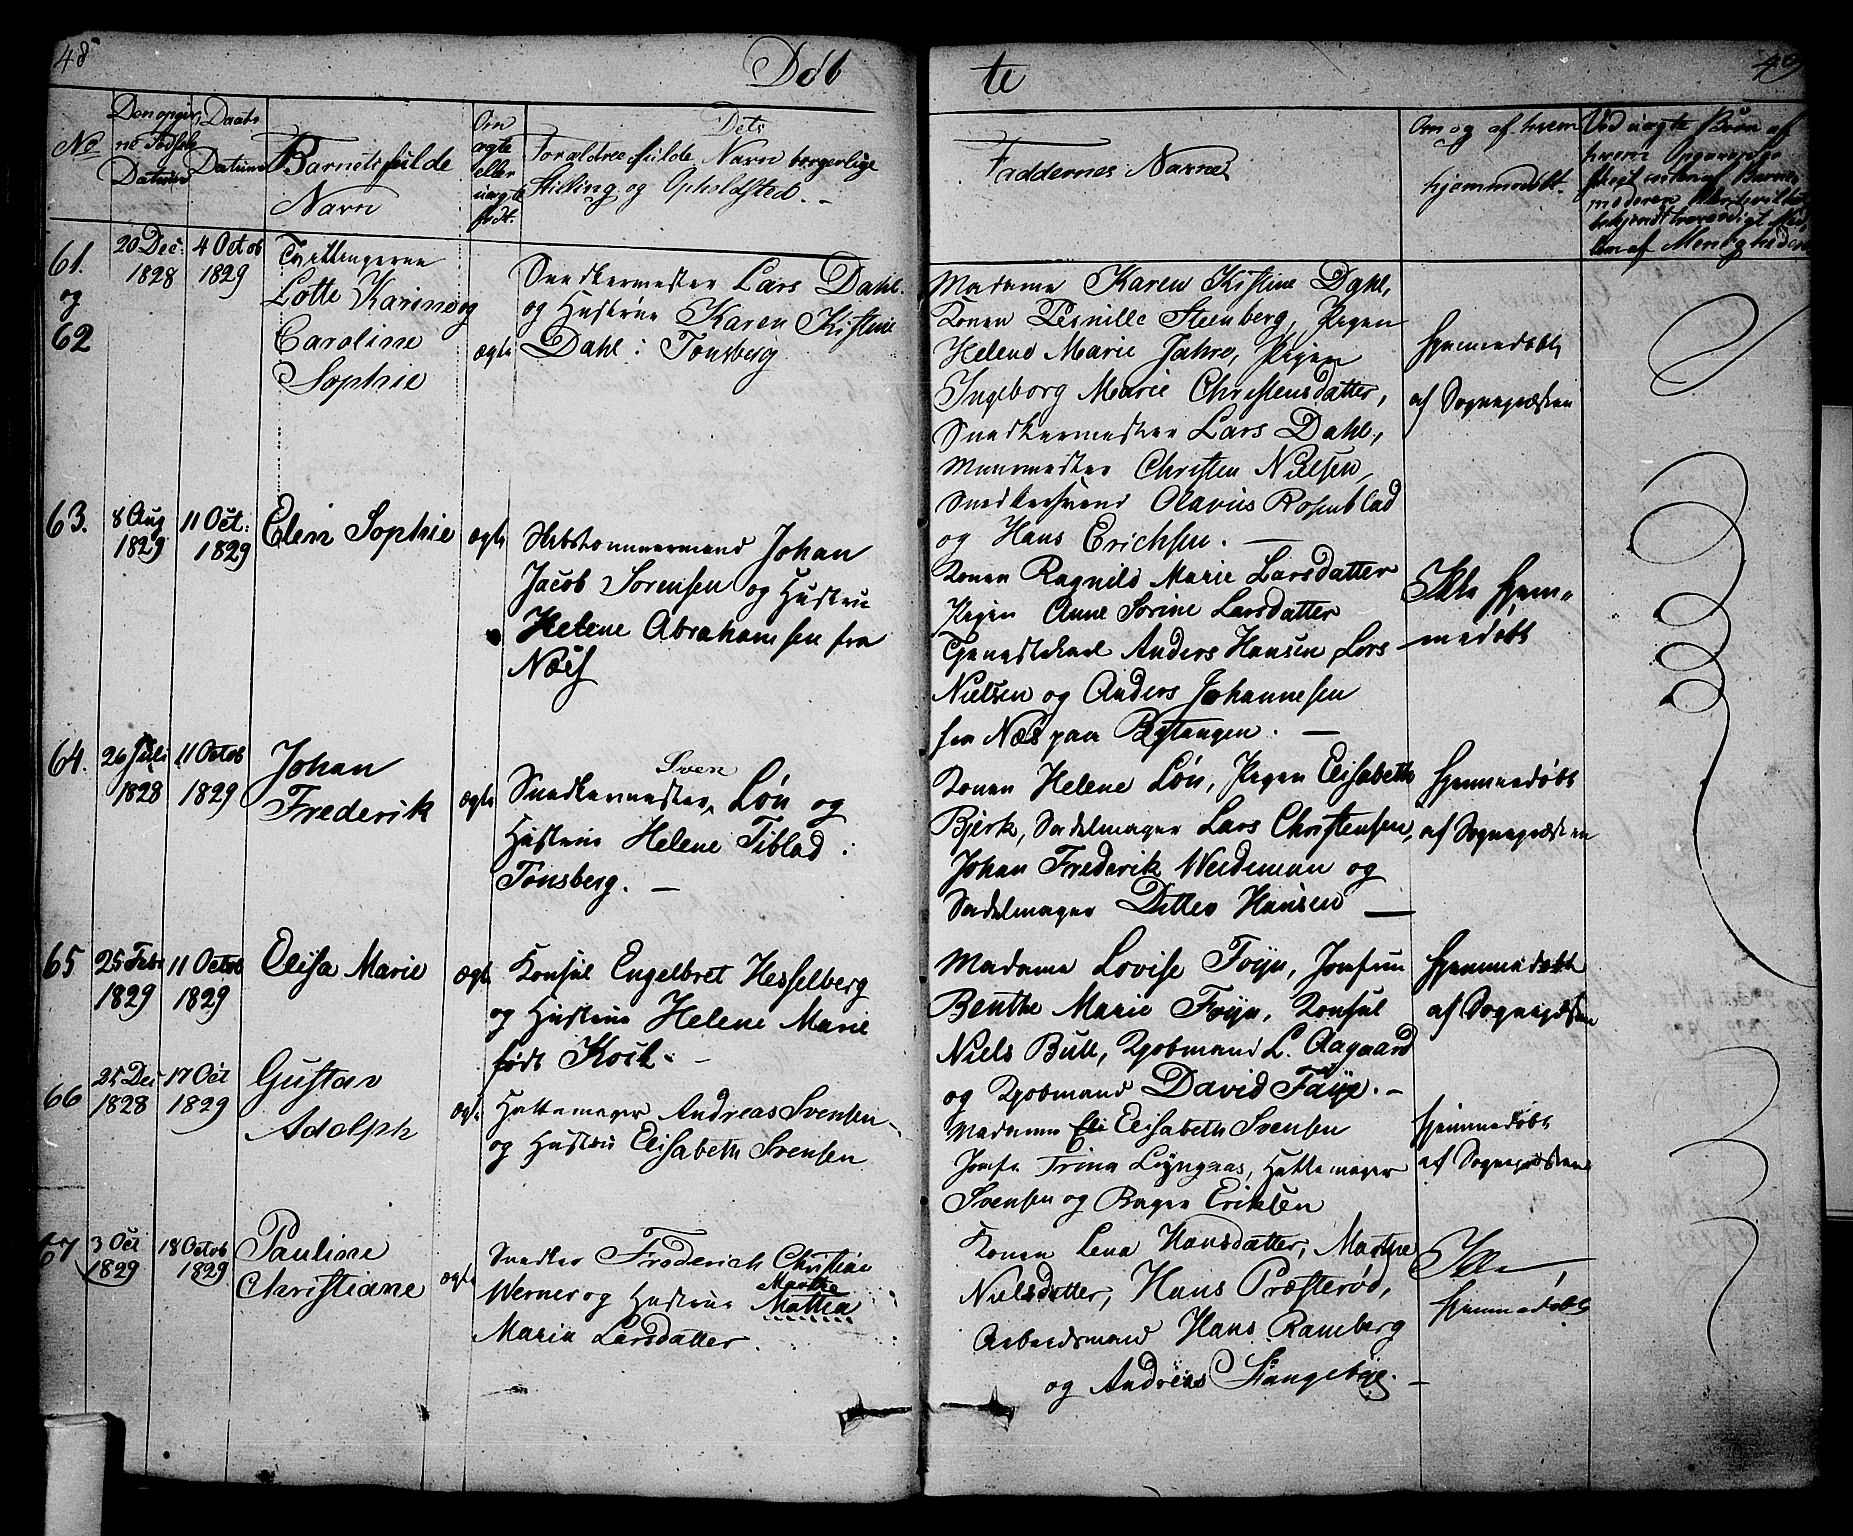 48
Døb
te
49
No
Den opgiv-
ne Fødsels
Datum
Daabs
Datum
Barnets fulde
Navn
Om
ægte
eller
uægte
født.
Dets
Forældres fulde Navn borgerlige
Stilling og Opholdsted. -
Faddernes Navne
Om og af hvem
hjemmedøbt.
Ved uægte Børn af
hvem
61.
og
62
20 Dec:
1828
4 Octob
1829
Tvillingerne
Lotte Karine og
Caroline
Sophie
ægte
Snedkermester Lars Dahl
og Hustrue Karen Kistine
Dahl i Tonsberg
Madame Karen Kistine Dahl,
Konen Pernille Steenberg, Pigen
Helene Marie Jahre, Pigen
Ingeborg Marie Christensdatter,
Snedkermester Lars Dahl,
Muurmester Christen Nielsen,
Snedkersvend Olavus Rosenblad
og Hans Erichsen. —
Hjemmedøbt
af Sognepræsten
63.
8 Aug
1829
11 Oct:
1829
Elen Sophie
ægte
Johan
Jacob Sørensen og Hustru
Helene Abrahamsen fra
Næs
Konen Ragnild Marie Larsdatter
Pigen Anne Sorine Larsdatter
Tjenestekarl Anders Hansen, Lars
Nielsen og Anders Johannesen
fra Næs paa Bastangen. —
Ikke hjem-
medøbt
64.
26 Juli
1828
11 Octob
1829
Johan
Frederik
ægte
Sven
Snedkermester Løn og
Hustrue Helene Tiblad i
Tonsberg. —
Konen Helene Løn, Pigen Elisabeth
Bjerk, Sadelmager Lars Christensen,
Johan Frederik Weideman og
Sadelmager Ditlev Hansen —
Hjemmedøbt
af Sognepræsten
65
25 Febr
1829
11 Octob
1829
Elisa Marie
ægte
Konsul Engelbret Hesselberg
og Hustrue Helene Marie
født Kock. -
Madame Lovise Foyn, Jomfru
Benthe Marie Foyn, Konsul
Niels Bull, Kjøbmand L. Aagaard
og Kjøbmand David Faye. -
Hjemmedøbt
af Sognepræsten
66
25 Dec
1828
17 Oct
1829
Gustav
Adolph
ægte
Hattemager Andreas Svensen
og Hustru Elisabeth Svensen
Madame Eli Elisabeth Svensen
Jomfr Trina Lyngaas, Hattemager
Svensen og Bager Eriksen
Hjemmedøbt
af Sognepræsten
67
3 Oct
1829
18 Octob
1829
Pauline
Christiane
ægte
Snedker Frederich Christian
Werner og Hustrue Marthe
Mathea
Maria Larsdatter.
Konen Lena Hansdatter, Marthe
Nielsdatter, Hans Præsterød,
Arbeidsmand Hans Ramberg
og Andreas Stangebye. -
Ikke
hjemmedøbt